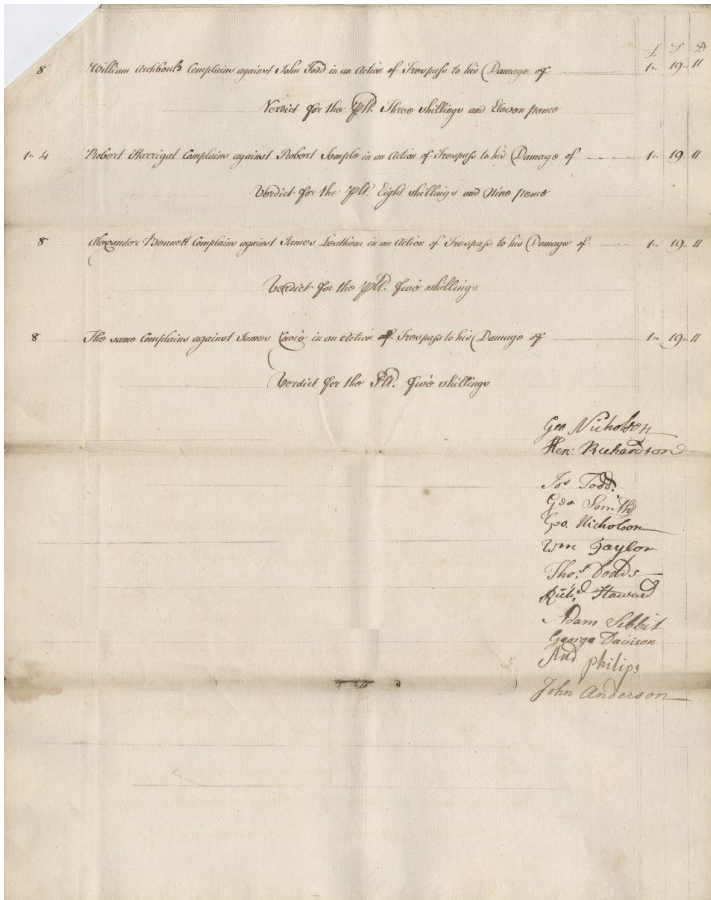 £ S D
8 William Archbold Complains against John Todd in an Action of Trespass to his Damage of 1 " 19 " 11
Verdict for the Plt. Three Shillings and Eleven pence
1 " 4 Robert Harrigat Complains against Robert Semple in an Action of Trespass to his Damage of 1 " 19 " 11
Verdict for the Plt. Eight Shillings and Nine pence
8 Alexander Bennett Complains against James in an Action of Trespass to his Damage of 1 " 19 " 11
Verdict for the Plt. five shillings
8 The same Complains against James in an Action of Trespass to his Damage of 1 " 19 " 11
Verdict for the Plt. five shillings
Geo Nicholson
Hen: Richardson
Jos Todd.
Geo Smith
Geo. Nicholson
Wm Taylor
Thos. Dodds
Richd Steward
Adam Sibbit
George Davison
And philips
John Anderson